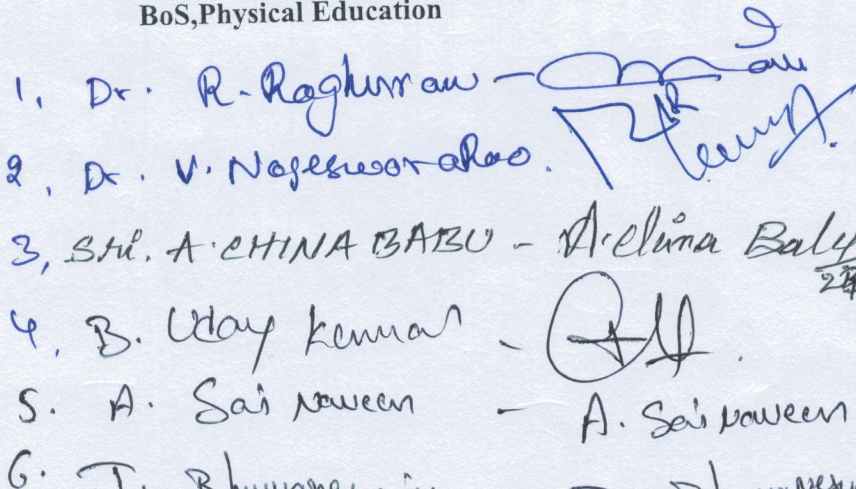 BoS,Physical Education
1, Dr. R. Raghurram -
2, Dr. V. NageswaraRao.
3, Sri. A. CHINA BABU - A. China Babu
4, B. Uday Kumar -
5. A. Sai Naveen - A. Sai Naveen
6. T.